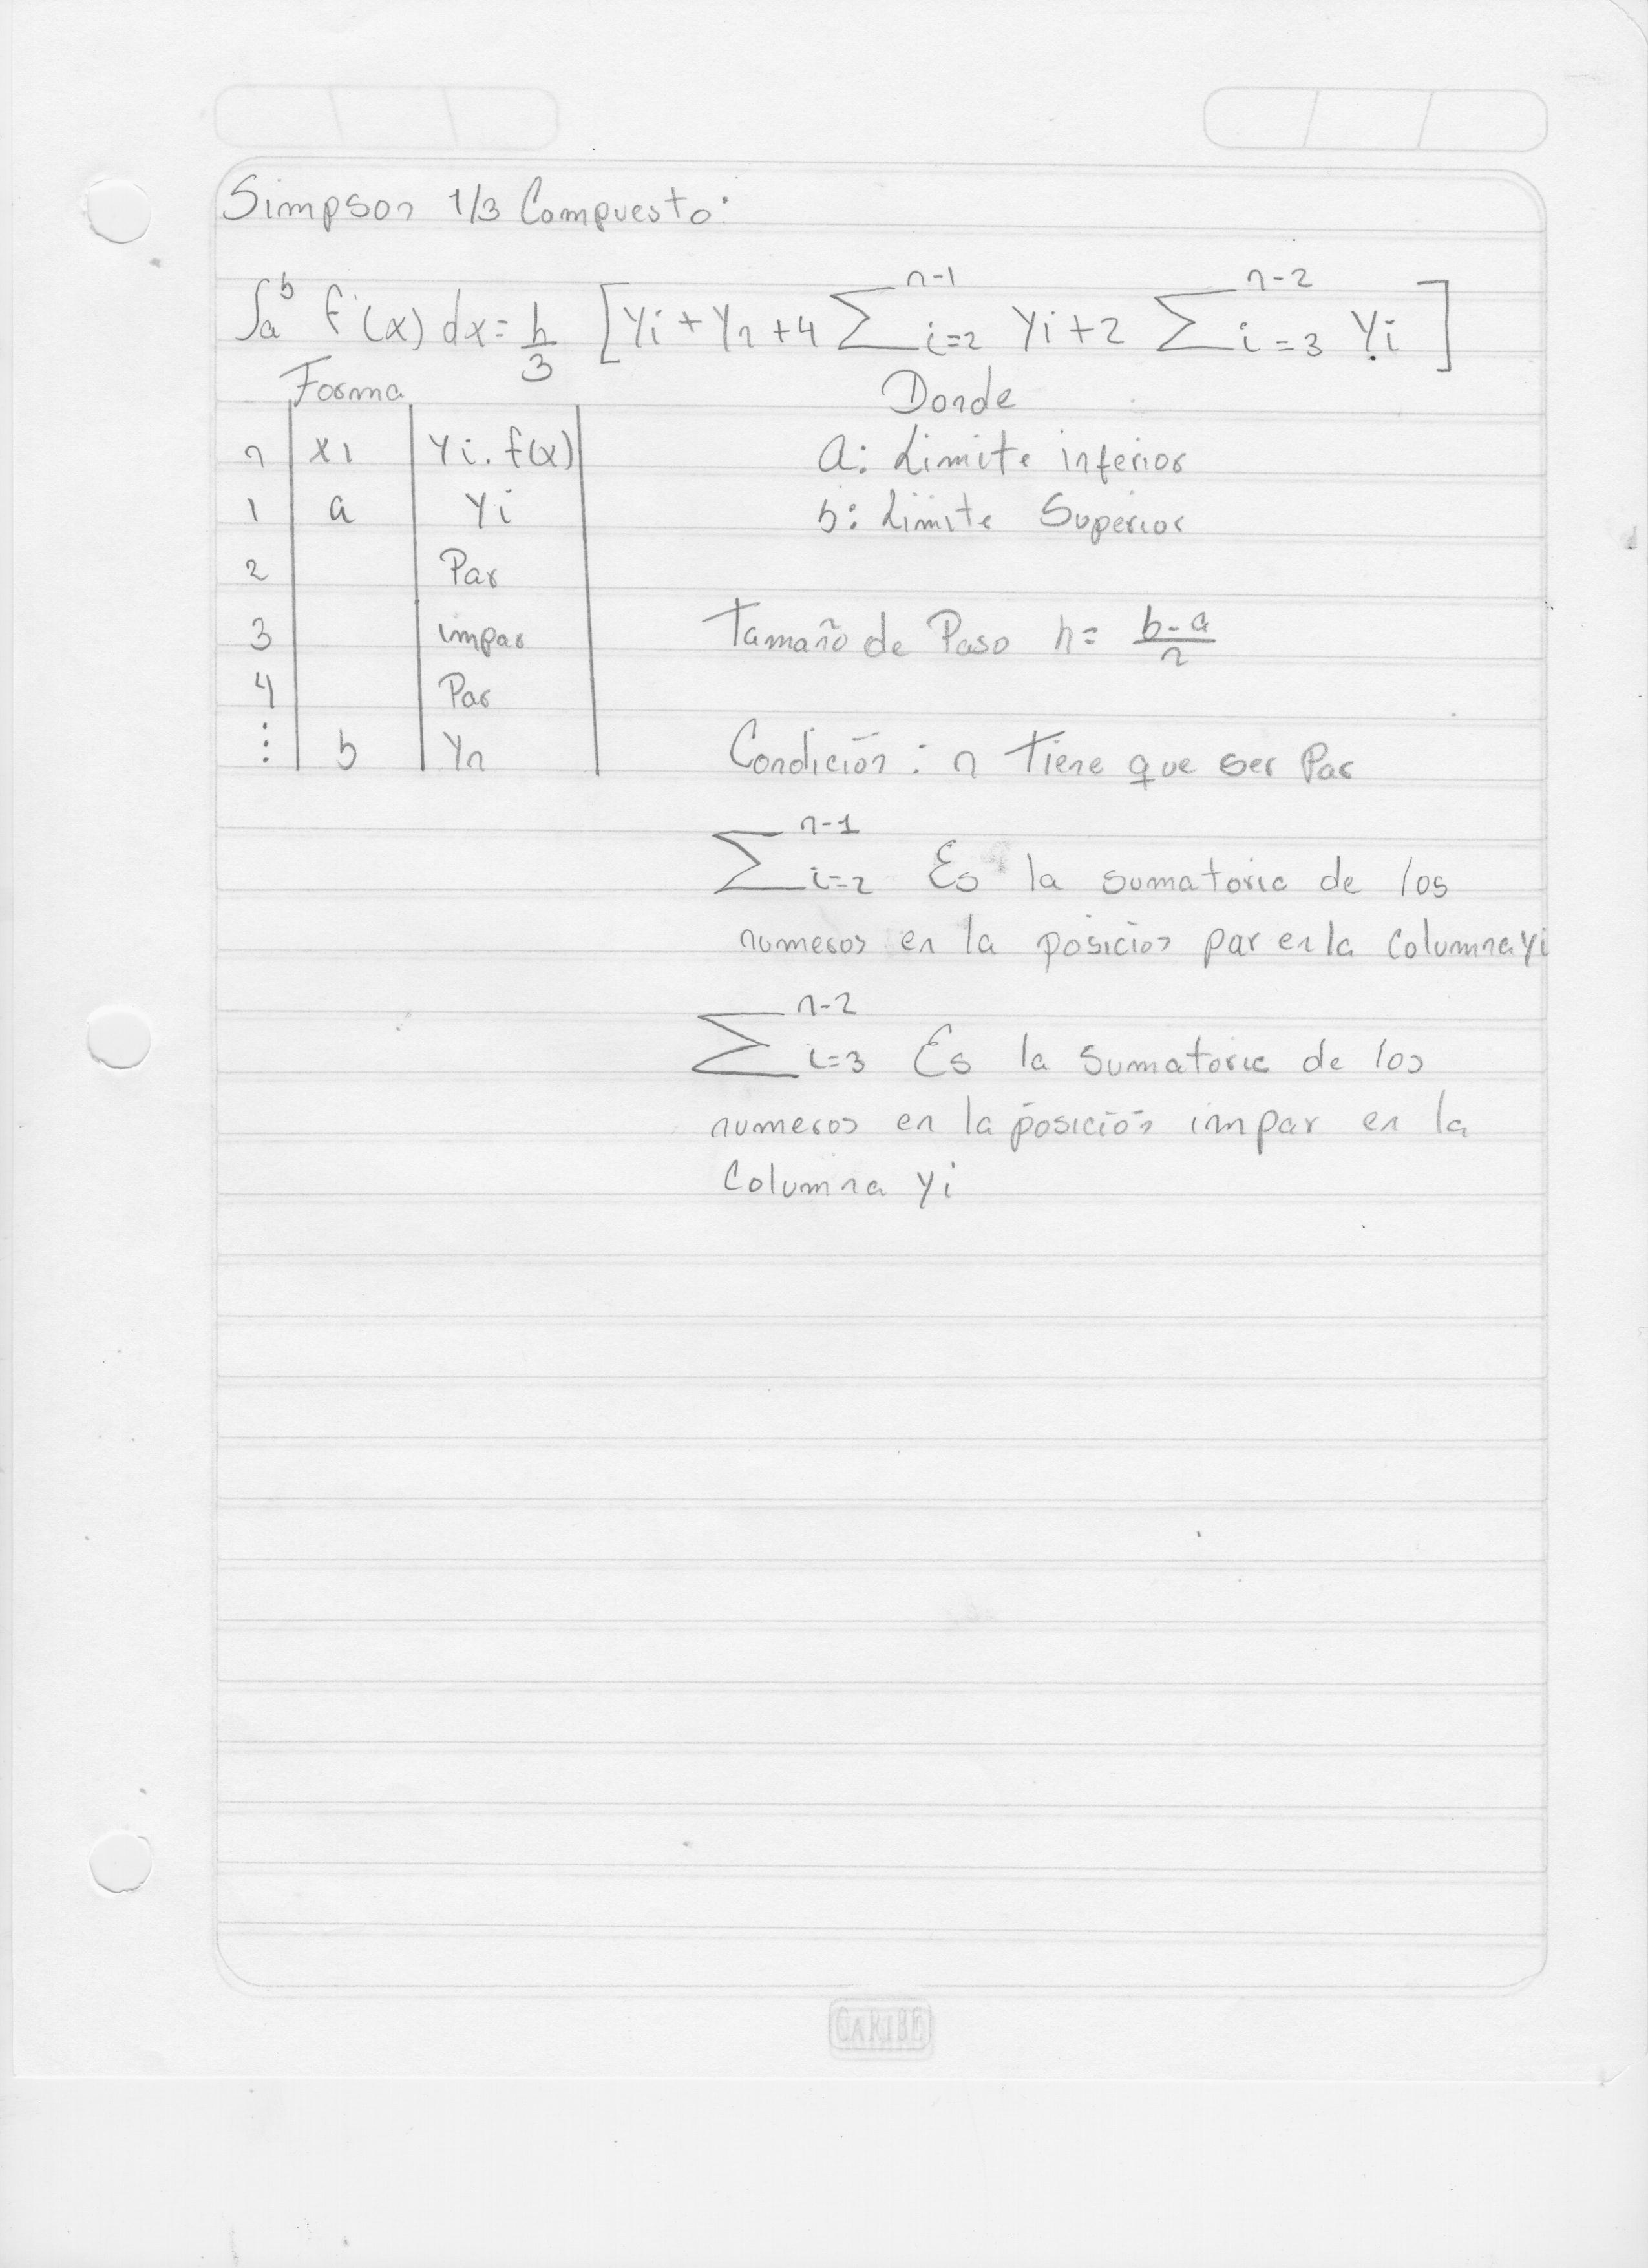 Simpson 1/3 Compuesto:
∫a^b f(x) dx = h/3 [Yi + Yn + 4 ∑_{i=2}^{n-1} Yi + 2 ∑_{i=3}^{n-2} Yi]
Forma
n | x1 | Yi. f(x)
1 | a | Yi
2 | | Par
3 | | impar
4 | | Par
⋮ | b | Yn
Donde
a: Limite inferior
b: Limite Superior
Tamaño de Paso h = b-a/n
Condición: n Tiene que ser Par
∑_{i=2}^{n-1} Es la sumatoria de los
numeros en la posición par en la Columna Yi
∑_{i=3}^{n-2} Es la Sumatoria de los
numeros en la posición impar en la
Columna Yi
CARIBE